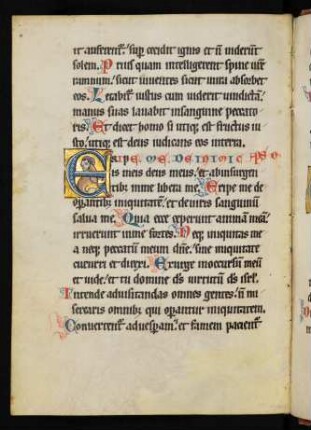 it auferent͛. sup̄ cecidit ignis et n̄ viderūt
solem. Prius quam intelligerent spine ur̄e
ramnum. sicut uiuentes sicut in ira absorbet
eos. Letabit͛ iustus cum uiderit uindictā.
manus suas lauabit insanguine peccato
ris. Et dicet homo si utiq; est fructus iu
sto. utiq; est deus iudicans eos interra.
Eripe me de inimic
is meis deus meus. et abinsurgen
tib; in me libera me. Eripe me de
op̄antib; iniquitatē. et deuiris sanguinū
salua me. Quia ecce ceperunt animā meā.
irruerunt inme fortes. Neq; iniquitas me
a neq; peccatū meum dn̄e. sine iniquitate
cucurri et direxi. Exurge inoccursū meū
et uide. et tu domine ds̄ uirtutū ds̄ isrl̄.
Intende aduisitandas omnes gentes. n̄ mi
serearis omnib; qui op̄antur iniquitatem.
Conuertent͛ aduesp̄am. et famem pacient͛